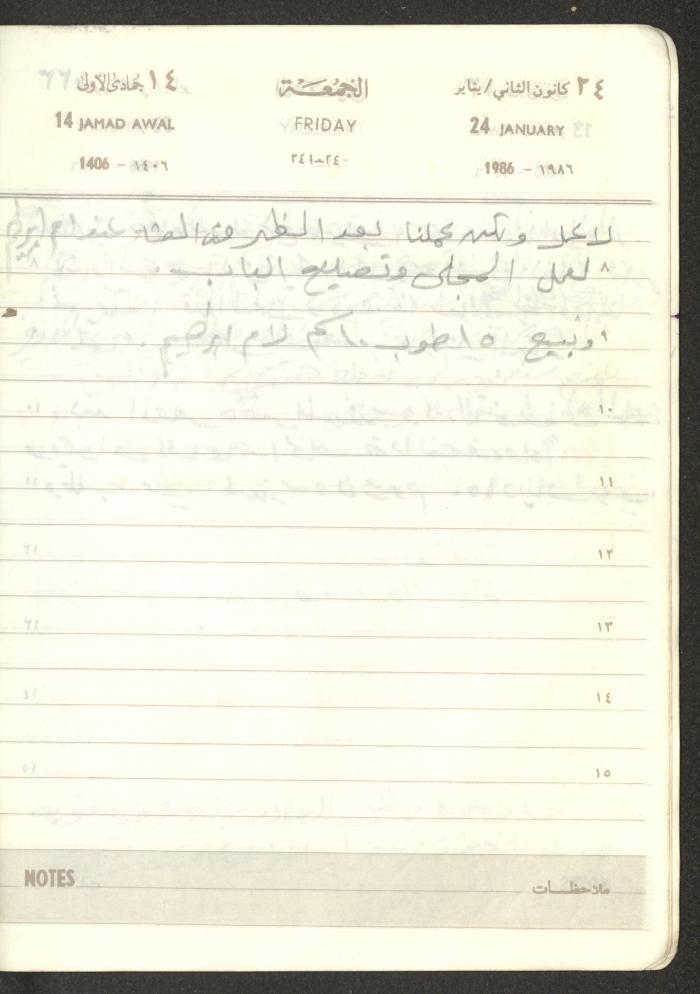 ٢٤ كانون الثاني/يناير الجمعة ١٤ جمادى الأولى
24 JANUARY FRIDAY 14 JAMAD AWAL
1986 - ١٩٨٦ ٢٤-٣٤١ 1406 - ١٤٠٦
لا عمل ولكن عملنا بعد الظهر حتى العشاء عند ام ابراهيم
٨ لعمل المجلى وتصليح الباب.
٩ ونبيع ١٥ طوب ١٠ كم لام ابراهيم.
١٠
١١
١٢
١٣
١٤
١٥
NOTES ملاحظات